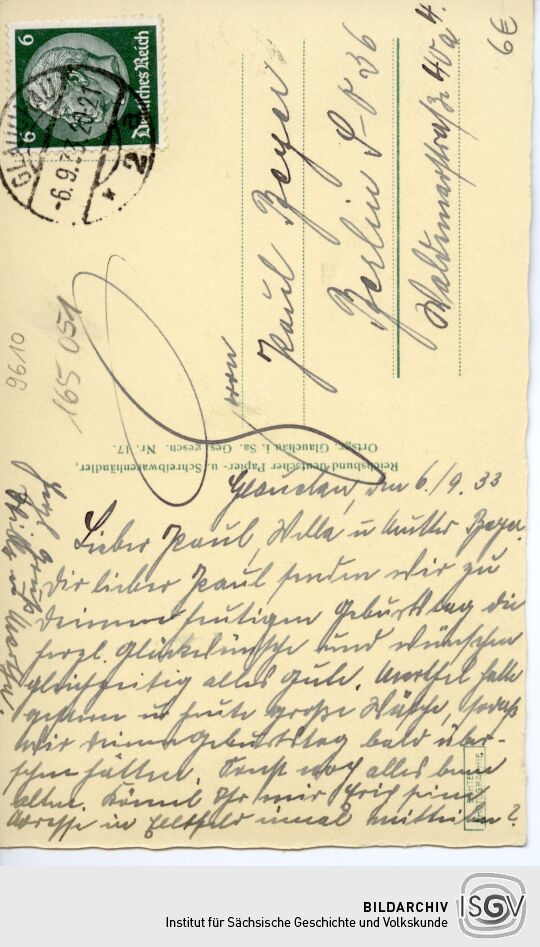 6
Deutsches Reich
6
GLAUCHAU
-6.9.33.20-21
* 2 a
6€
9610
165 051
Herrn
Paul Beyer
Berlin S-O 36
Waldemarstraße 40a 4.
Reichsbund deutscher Papier- u. Schreibwarenhändler,
Ortsgr. Glauchau i. Sa. Ges. gesch. Nr. 17.
Glauchau, den 6./9. 33
Lieber Paul, Wella u Mutter Beyer.
Dir lieber Paul senden wir zu
Deinem heutigen Geburtstag die
herzl. Glückwünsche und wünschen
gleichzeitig alles Gute. hatte
gestern u heute große Wäsche, sodaß
wir Deinen Geburtstag bald über-
sehen hätten. Sonst noch alles beim
alten. Könnt Ihr mir Erich seine
Adresse in einmal mitteilen?
Herzl. Grüße
u
ECHTE
PHOTOGRAPHIE
BILDARCHIV
Institut für Sächsische Geschichte und Volkskunde
ISGV